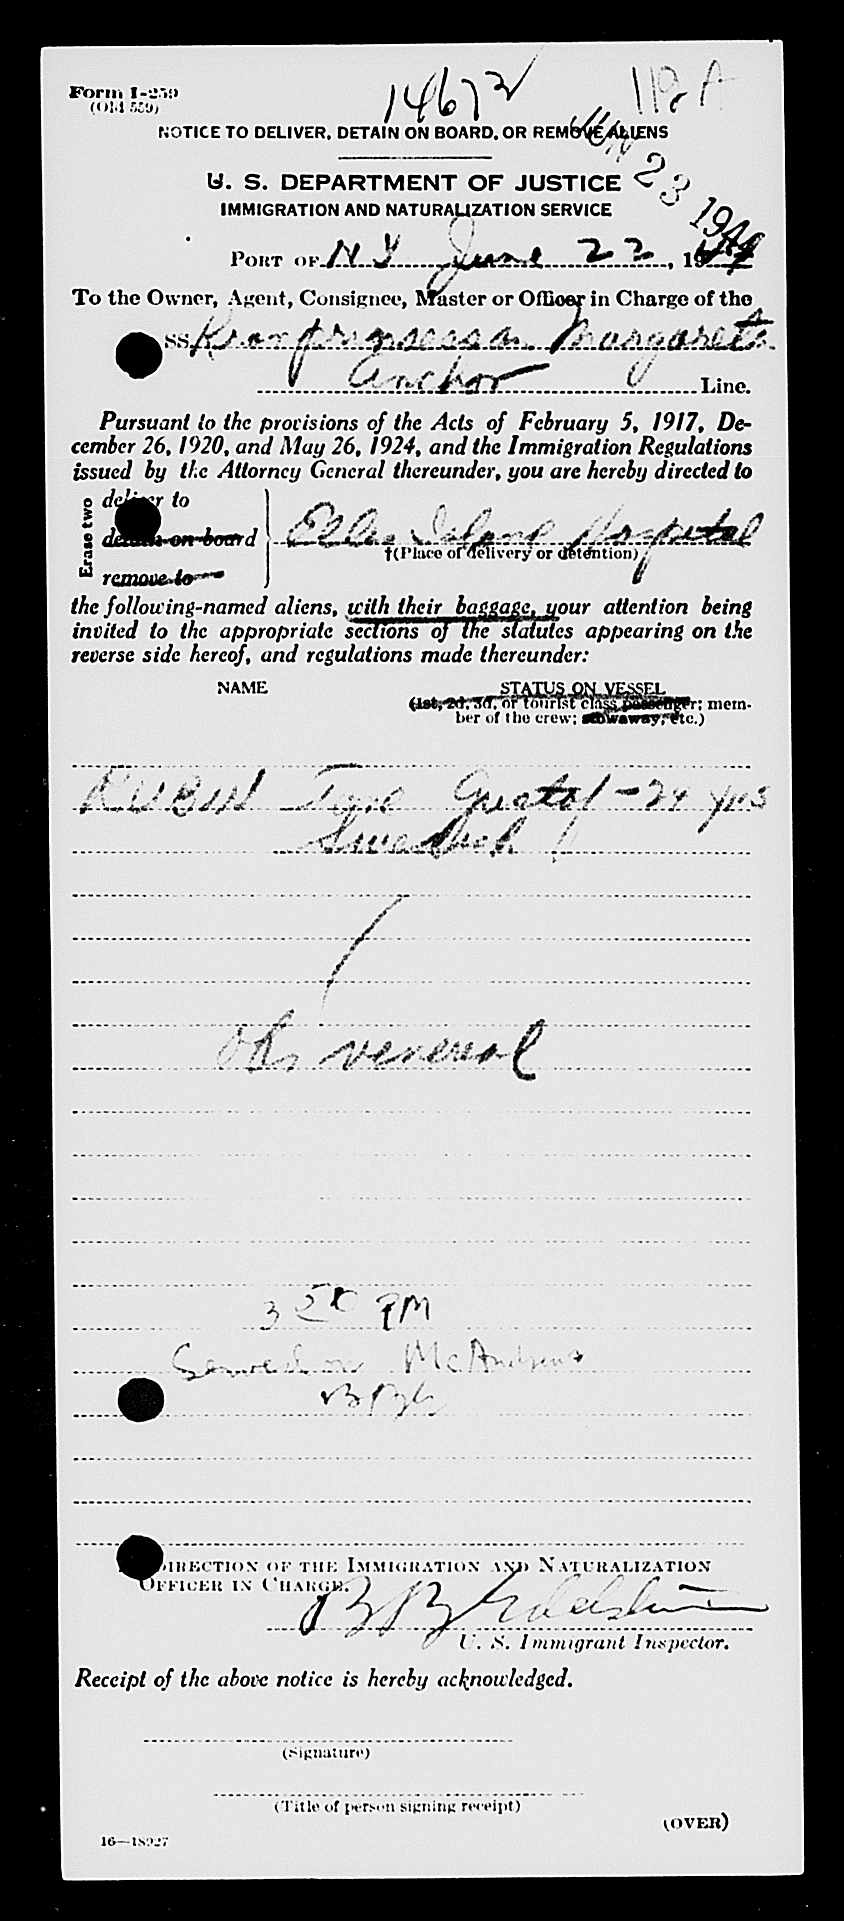 Form I-259
(Old 559)
14672
NOTICE TO DELIVER, DETAIN ON BOARD, OR REMOVE ALIENS
JUN 23 1944
U. S. DEPARTMENT OF JUSTICE
IMMIGRATION AND NATURALIZATION SERVICE
PORT OF N Y June 22, 1944
To the Owner, Agent, Consignee, Master or Officer in Charge of the
SS. Kronprinsessan Margareta
Anchor Line.
Pursuant to the provisions of the Acts of February 5, 1917, De-
cember 26, 1920, and May 26, 1924, and the Immigration Regulations
issued by the Attorney General thereunder, you are hereby directed to
Erase two
deliver to
detain on board
remove to
Ellis Island Hospital
†(Place of delivery or detention)
the following-named aliens, with their baggage, your attention being
invited to the appropriate sections of the statutes appearing on the
reverse side hereof, and regulations made thereunder:
NAME
STATUS ON VESSEL
(1st, 2d, 3d, or tourist class passenger; mem-
ber of the crew; stowaway, etc.)
RUBIN Gustaf - 24 yrs
Swedish
venereal
3 50 PM
Served on McAndrews
BBG
DIRECTION OF THE IMMIGRATION AND NATURALIZATION
OFFICER IN CHARGE.
B B Goldstein
U. S. Immigrant Inspector.
Receipt of the above notice is hereby acknowledged.
(Signature)
(Title of person signing receipt)
(OVER)
16—18927